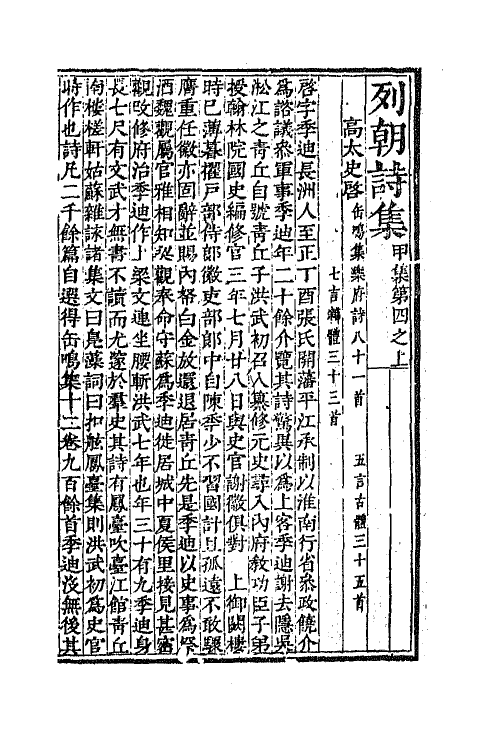 列朝詩集 甲集第四之上
高太史啓 缶鳴集樂府詩八十一首 五言古體三十五首
七言雜體三十三首
啓字季迪長洲人至正丁酉張氏開藩平江承制以淮南行省叅政饒介
爲諮議叅軍事季迪年二十餘介覽其詩驚異以爲上客季迪謝去隱吳
淞江之靑丘自號靑丘子洪武初召入纂修元史尋入內府敎功臣子弟
授翰林院國史編修官三年七月廿八日與史官謝徽俱對 上御闕樓
時已薄暮擢戶部侍郎徽吏部郎中自陳季少不習國計且孤遠不敢驟
膺重任徽亦固辭並賜內帑白金放還退居靑丘先是季迪以史事爲祭
酒魏觀屬官雅相知契觀奉命守蘇爲季迪徙居城中夏侯里接見甚密
觀改修府治季迪作上梁文連坐腰斬洪武七年也年三十有九季迪身
長七尺有文武才無書不讀而尤邃於羣史其詩有鳳臺吹臺江館靑丘
南樓槎軒姑蘇雜詠諸集文曰鳧藻詞曰扣舷鳳臺集則洪武初爲史官
時作也詩凡二千餘篇自選得缶鳴集十二卷九百餘首季迪沒無後其